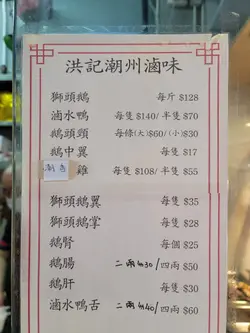 洪記潮州滷味
獅頭鵝 每斤 $128
滷水鴨 每隻 $140/ 半隻 $70
鵝頭頸 每條(大)$60/(小)$30
鵝中翼 每隻 $17
潮州 雞 每隻 $108/ 半隻 $55
獅頭鵝翼 每隻 $35
獅頭鵝掌 每隻 $28
鵝腎 每個 $25
鵝腸 二両 $30/四両 $50
鵝肝 每隻 $30
滷水鴨舌 二両 $40/四両 $60